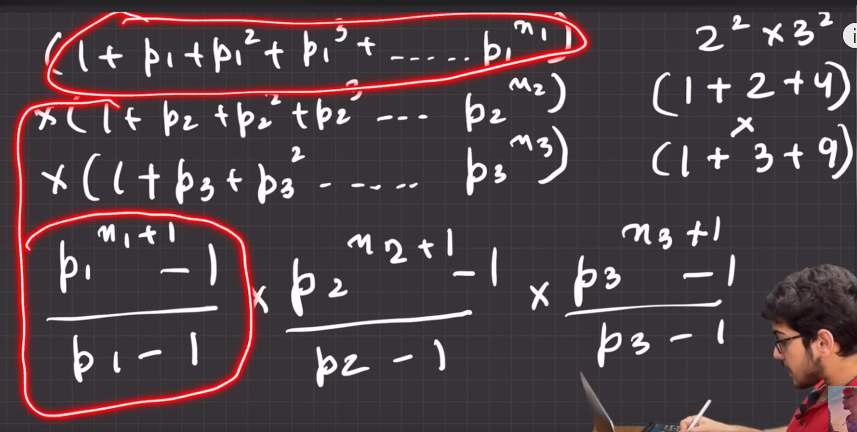 (1 + p₁ + p₁² + p₁³ + ...... p₁ⁿ¹)
×(1 + p₂ + p₂² + p₂³ --- p₂ⁿ²)
×(1 + p₃ + p₃² - ---.. p₃ⁿ³)
p₁ⁿ¹⁺¹ - 1 / p₁ - 1 × p₂ⁿ²⁺¹ - 1 / p₂ - 1 × p₃ⁿ³⁺¹ - 1 / p₃ - 1
2² × 3²
(1 + 2 + 4)
×
(1 + 3 + 9)